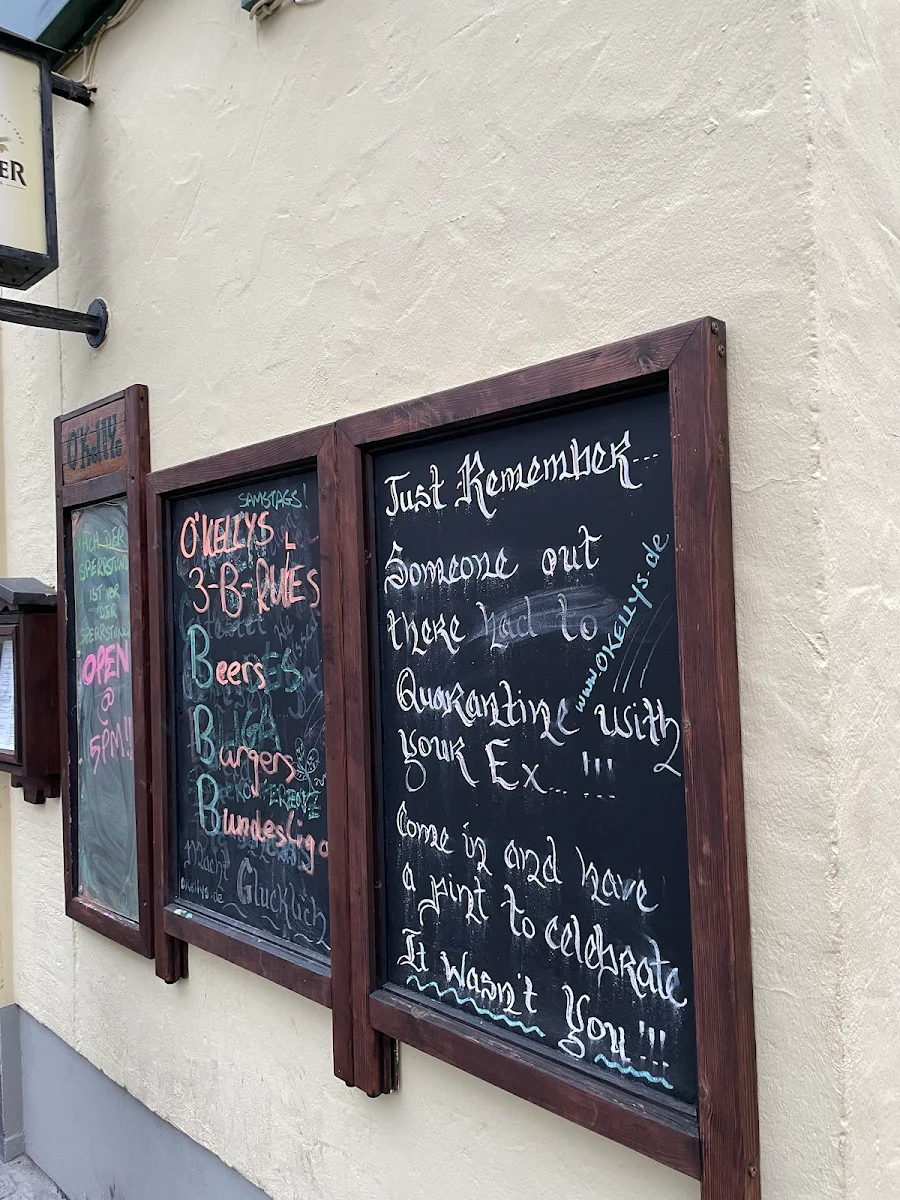 O'Kelly's
NACH DER
SPERRSTUND
IST VOR
DER
SPERRSTUND
OPEN
@
5PM!!
SAMSTAGS!
O'KELLYS
3-B-RULES
Beers
Burgers
Bundesliga
Macht
Glücklich
okellys.de
Just Remember...
Someone out
there had to
Quarantine with
your Ex... !!!
www.OKELLYS.de
Come in and have
a pint to celebrate
It Wasn't You!!!